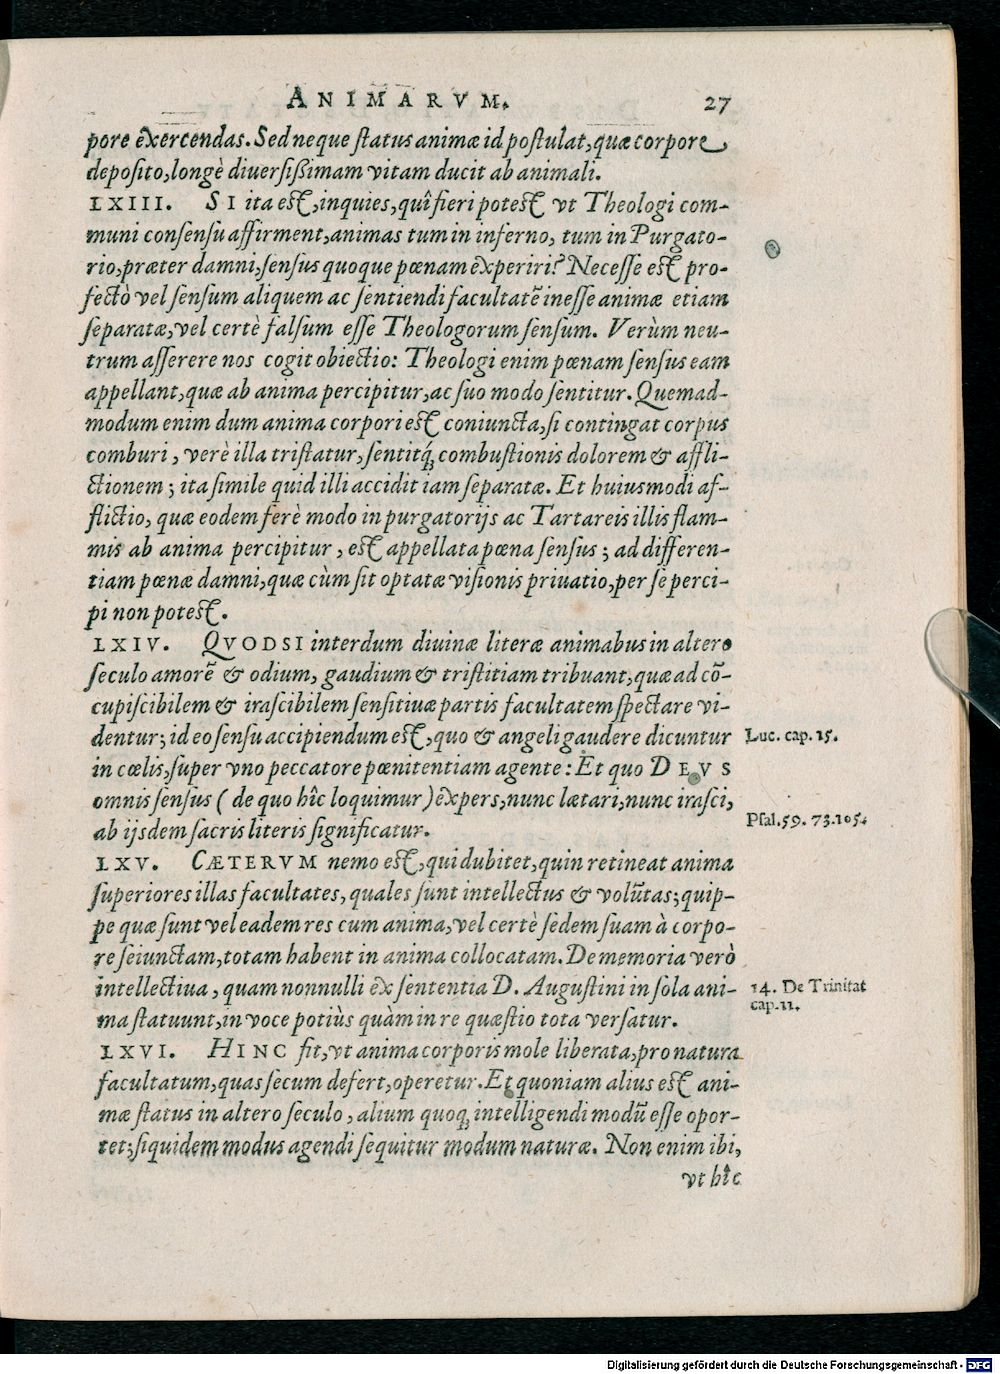 ANIMARVM. 27
pore exercendas. Sed neque status animæ id postulat, quæ corpore
deposito, longè diuersißimam vitam ducit ab animali.
LXIII. SI ita est, inquies, quî fieri potest vt Theologi com-
muni consensu affirment, animas tum in inferno, tum in Purgato-
rio, præter damni, sensus quoque pœnam experiri? Necesse est pro-
fectò vel sensum aliquem ac sentiendi facultatē inesse animæ etiam
separatæ, vel certè falsum esse Theologorum sensum. Verùm neu-
trum asserere nos cogit obiectio: Theologi enim pœnam sensus eam
appellant, quæ ab anima percipitur, ac suo modo sentitur. Quemad-
modum enim dum anima corpori est coniuncta, si contingat corpus
comburi, verè illa tristatur, sentitq́; combustionis dolorem & affli-
ctionem; ita simile quid illi accidit iam separatæ. Et huiusmodi af-
flictio, quæ eodem ferè modo in purgatorijs ac Tartareis illis flam-
mis ab anima percipitur, est appellata pœna sensus; ad differen-
tiam pœnæ damni, quæ cùm sit optatæ visionis priuatio, per se perci-
pi non potest.
LXIV. QVODSI interdum diuinæ literæ animabus in altero
seculo amorē & odium, gaudium & tristitiam tribuant, quæ ad cō-
cupiscibilem & irascibilem sensitiuæ partis facultatem spectare vi-
dentur; id eo sensu accipiendum est, quo & angeli gaudere dicuntur
Luc. cap. 15.
in cœlis, super vno peccatore pœnitentiam agente: Et quo DEVS
omnis sensus (de quo hîc loquimur) expers, nunc lætari, nunc irasci,
Psal. 59. 73. 105.
ab ijsdem sacris literis significatur.
LXV. CÆTERVM nemo est, qui dubitet, quin retineat anima
superiores illas facultates, quales sunt intellectus & volūtas; quip-
pe quæ sunt vel eadem res cum anima, vel certè sedem suam à corpo-
re seiunctam, totam habent in anima collocatam. De memoria verò
intellectiua, quam nonnulli ex sententia D. Augustini in sola ani-
14. De Trinitat
cap. 11.
ma statuunt, in voce potiùs quàm in re quæstio tota versatur.
LXVI. HINC fit, vt anima corporis mole liberata, pro natura
facultatum, quas secum defert, operetur. Et quoniam alius est ani-
mæ status in altero seculo, alium quoq; intelligendi modū esse opor-
tet; siquidem modus agendi sequitur modum naturæ. Non enim ibi,
vt hîc
Digitalisierung gefördert durch die Deutsche Forschungsgemeinschaft - DFG